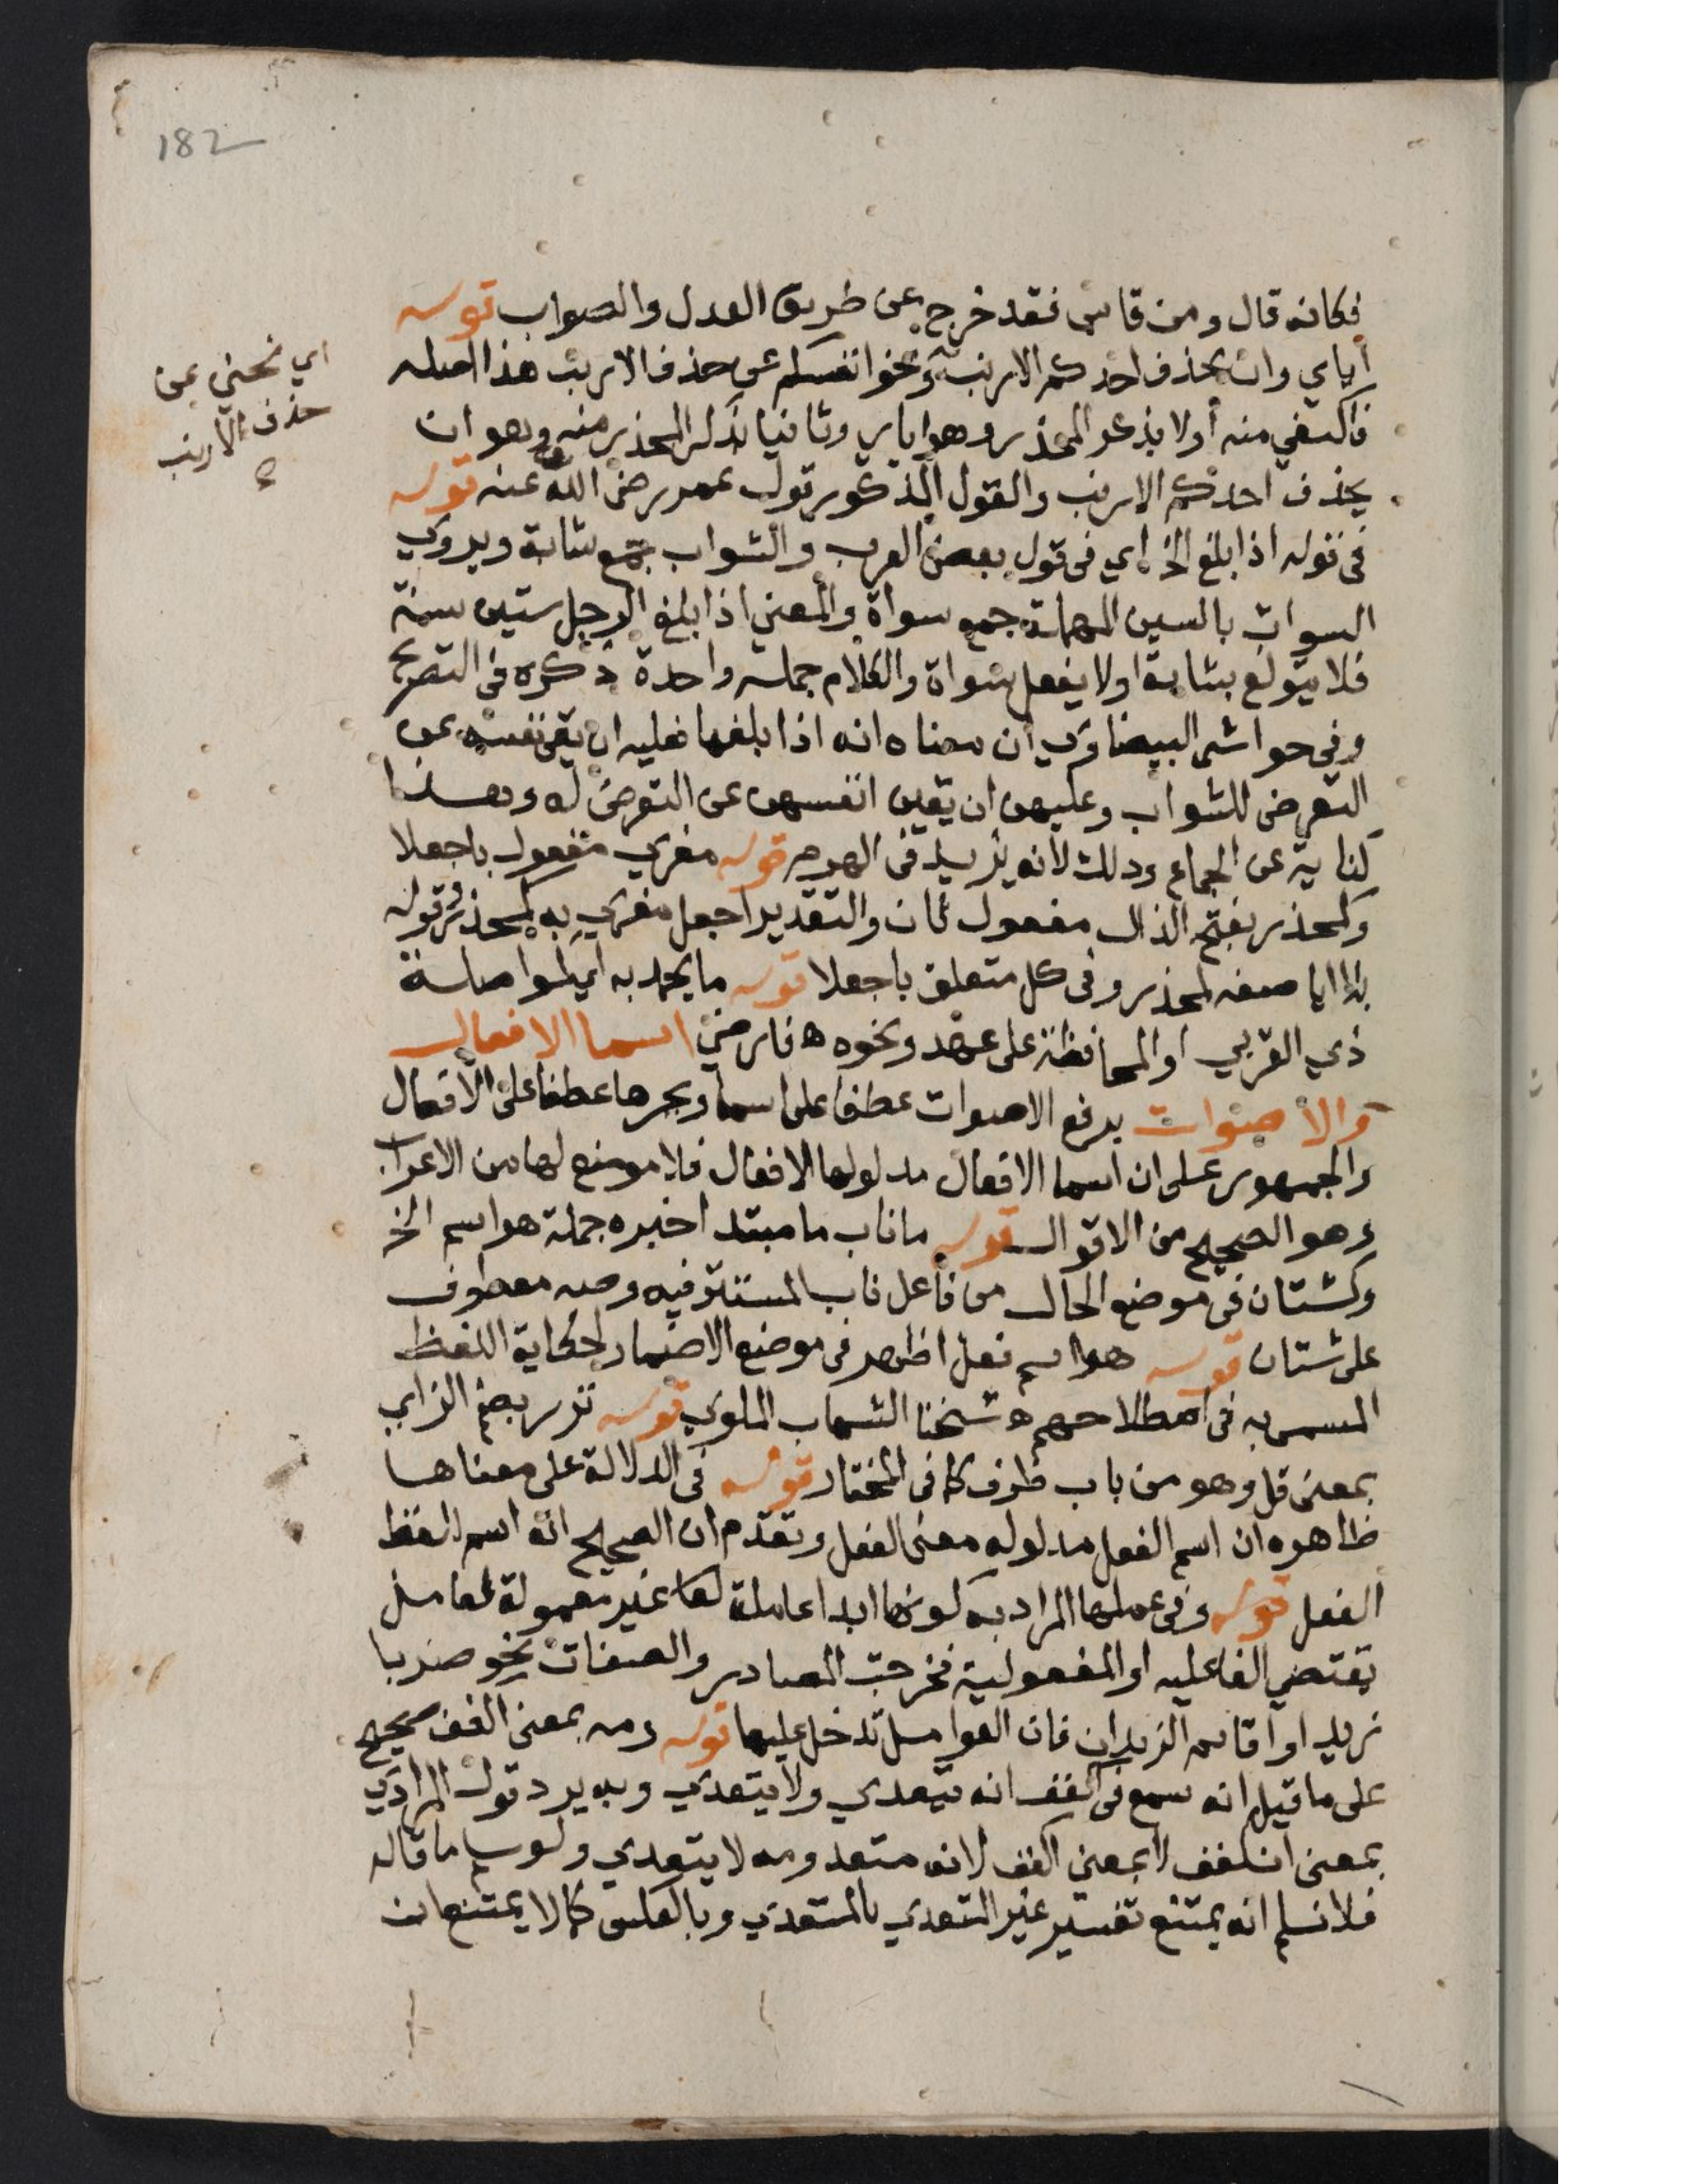 182
فكانه قال ومن قاس فقد خرج عن طريق العدل والصواب قوله
اياي وان يحذف احدكم الارنب ونحوا انفسكم عن حذف الارنب هذا اصله
فاكتفي منه أولا بذكر المحذر وهو اياي وثانيا بذكر المحذر منه وهو ان
يحذف احدكم الارنب والقول المذكور قول عمر رضى الله عنه قوله
فى قوله اذا بلغ الخ اي فى قول بعض العرب والشواب جمع شابة ويروي
السوات بالسين المهملة جمع سواة والمعني اذا بلغ الرجل ستين سنة
فلا يتولع بشابة اولا يفعل سواة والكلام جملة واحدة ذكره في التصريح
وفي حواشى البيضاوي ان معناه انه اذا بلغها فعليه ان يقى نفسه عن
التعرض للشواب وعليهن ان يقين انفسهن عن التعرض له وهذا
كناية عن الجماع وذلك لانه يزيد فى الهرم قوله مغري مفعول باجعلا
وكمحذر بفتح الذال مفعول ثان والتقدير اجعل مغري به كمحذر وقوله
بلا ايا صفه لمحذر وفى كل متعلق باجعلا قوله ما يحمد به اي لمواصلة
ذي القربي او المحافظة على عهد ونحوه ه فارضي اسما الافعال
والاصوات برفع الاصوات عطفا على اسما وبجرها عطفا على الافعال
والجمهور على ان اسما الافعال مدلولها الافعال فلا موضع لها من الاعراب
وهو الصحيح من الاقوال قوله ما ناب ما مبتدا خبره جملة هو اسم الخ
وكشتان فى موضع الحال من فاعل ناب المستتر فيه وصه معطوف
على شتان قوله هو اسم فعل اظهر فى موضع الاضمار لحكاية اللفظ
المسمى به فى اصطلاحهم ه شيخنا الشهاب الملوي قوله نزر بضم الزاي
بمعنى قل وهو من باب ظرف كما فى المختار قوله فى الدلالة على معناها
ظاهره ان اسم الفعل مدلوله معنى الفعل وتقدم ان الصحيح انه اسم للفظ
الفعل قوله وفى عملها المراد به كونها ابدا عاملة لها غير معمولة لعامل
يقتضي الفاعليه او المفعولية فخرجت المصادر والصفات نحو ضربا
زيدا واقائم الزيدان فان العوامل تدخل عليها قوله ومه بمعنى اكفف صحيح
على ما قيل انه سمع فى اكفف انه يتعدي ولا يتعدي وبه يرد قول المرادي
بمعنى انكفف لا بمعني اكفف لانه متعد ومه لا يتعدي ولو سلم ما قاله
فلا نسلم انه يمتنع تفسير غير المتعدي بالمتعدي وبالعكس كما لا يمتنع ان
اي نحني عن
حذف الارنب